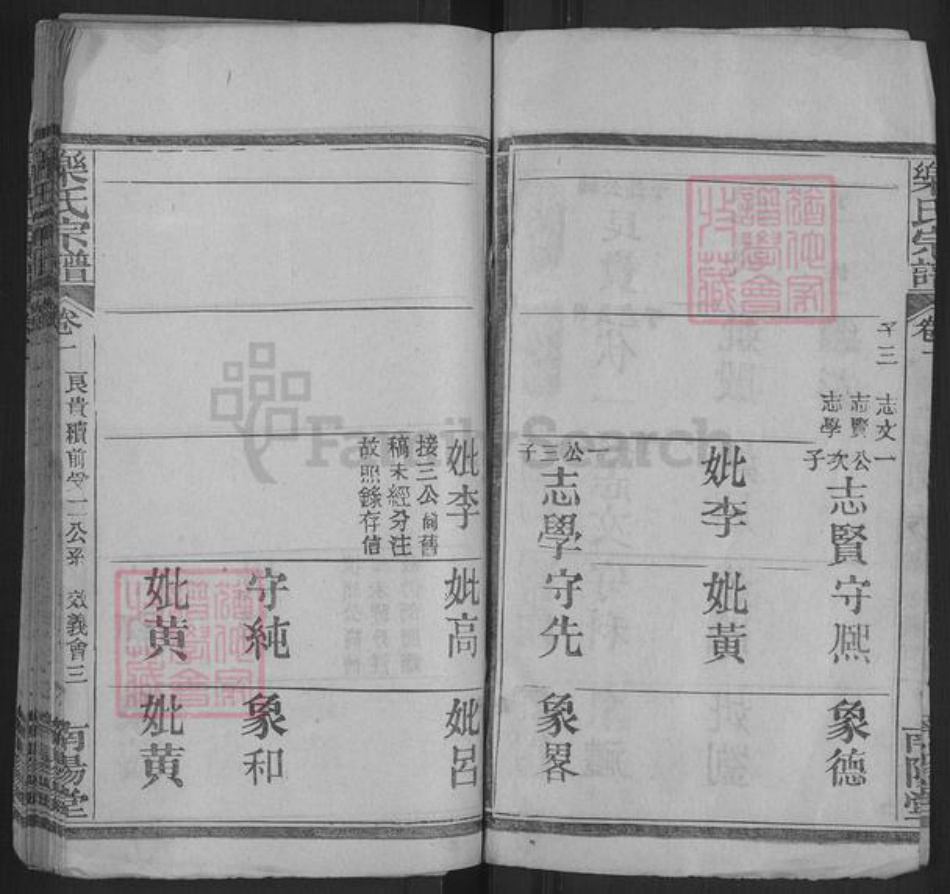 樂氏宗譜
卷一
子三
志文
志賢
志學
一公次子
志賢
守熈
象德
妣李
妣黃
一公三子
志學
守先
象畧
妣李
妣高
妣呂
接三公尙舊
稿未經分注
故照錄存信
守純
象和
妣黃
妣黃
樂氏宗譜
卷一
良貴積前
二公系
效義會三
南陽堂
南陽堂
FamilySearch